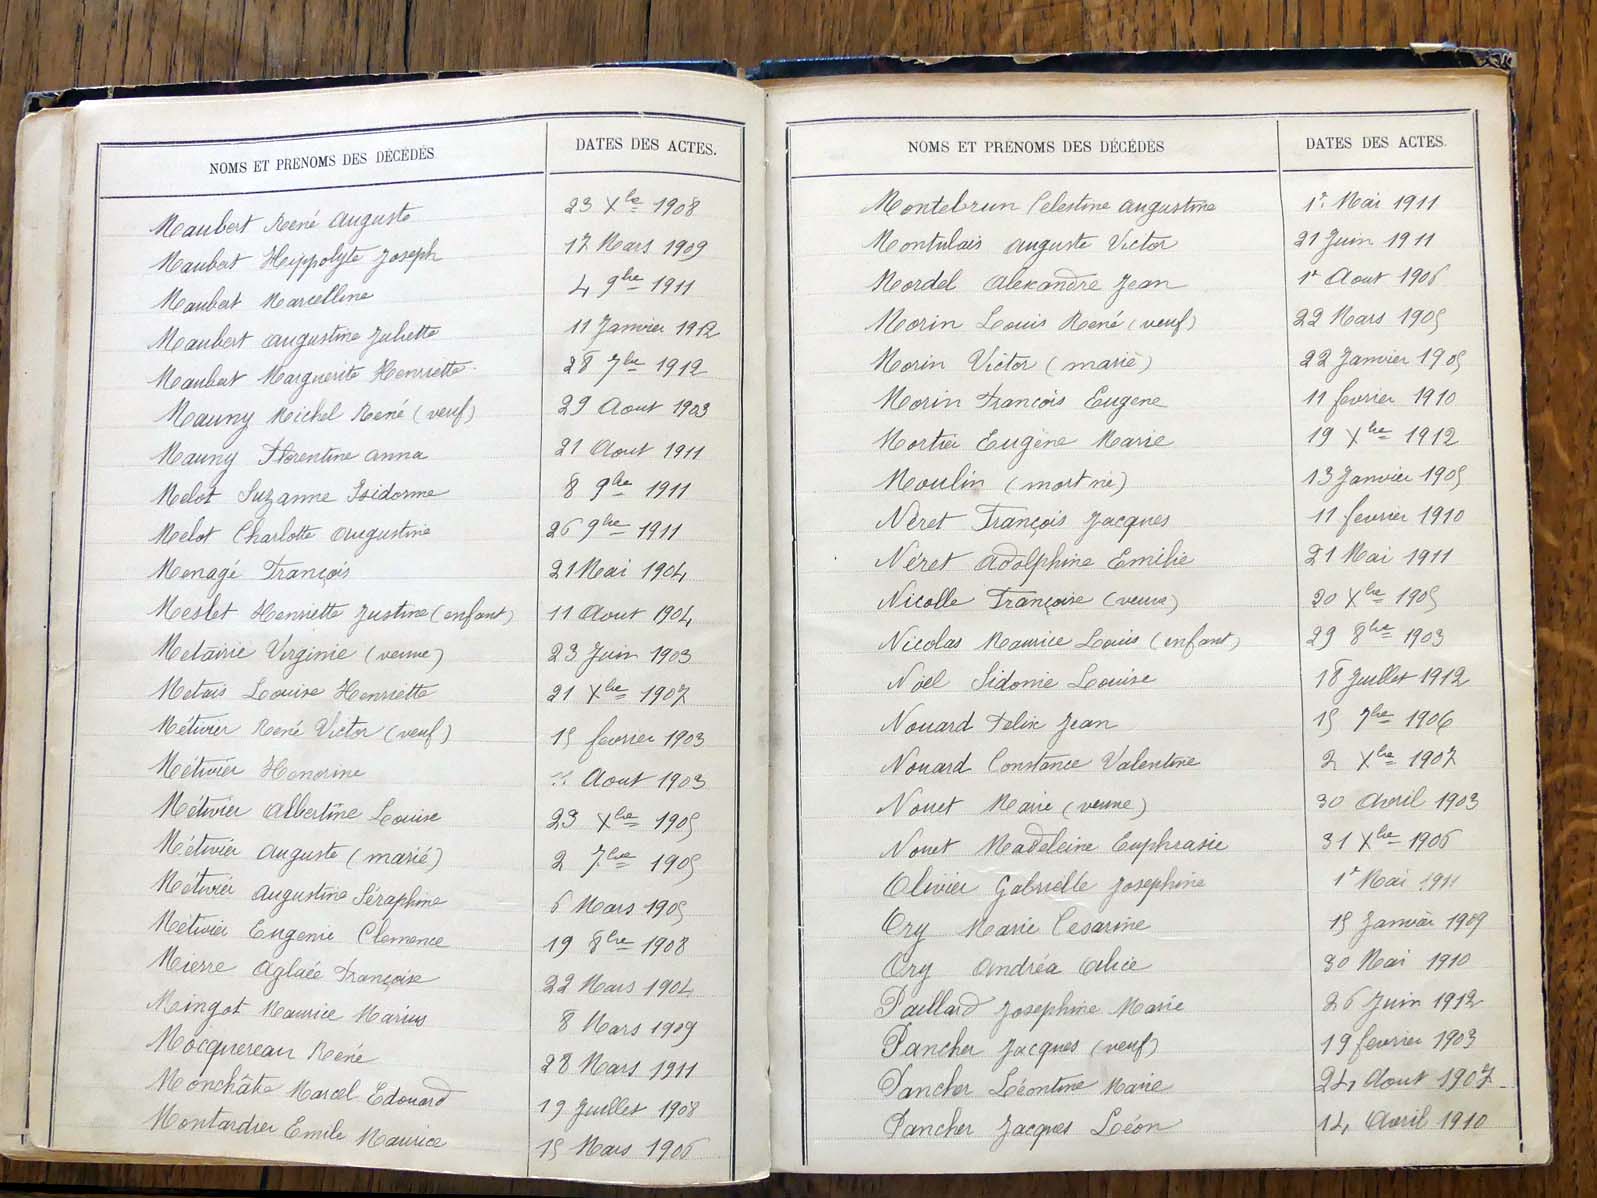 NOMS ET PRENOMS DES DÉCÉDÉS DATES DES ACTES.
Maubert René Auguste 23 Xbre 1908
Maubert Hyppolyte Joseph 17 Mars 1909
Maubert Marcelline 4 9bre 1911
Maubert Augustine Juliette 11 Janvier 1912
Maubert Marguerite Henriette 28 7bre 1912
Mauny Michel René (veuf) 29 Aout 1903
Mauny Florentine Anna 21 Aout 1911
Melot Suzanne Isidorine 8 9bre 1911
Melot Charlotte Augustine 26 9bre 1911
Menagé François 21 Mai 1904
Meslet Henriette Justine (enfant) 11 Aout 1904
Metairie Virginie (veuve) 23 Juin 1903
Metais Louise Henriette 21 Xbre 1907
Métivier René Victor (veuf) 15 fevrier 1903
Métivier Honorine Aout 1903
Métivier Albertine Louise 23 Xbre 1905
Métivier Auguste (marié) 2 7bre 1905
Métivier Augustine Séraphine 6 Mars 1905
Métivier Eugenie Clemence 19 8bre 1908
Mierre Aglaée Françoise 22 Mars 1904
Mingot Maurice Marius 8 Mars 1909
Mocquereau René 28 Mars 1911
Monchâtre Marcel Edouard 19 Juillet 1908
Montardier Emile Maurice 15 Mars 1906
NOMS ET PRÉNOMS DES DÉCÉDÉS DATES DES ACTES.
Montebrun Celestine Augustine 1r Mai 1911
Montulais Auguste Victor 21 Juin 1911
Mordel Alexandre Jean 1r Aout 1906
Morin Louis René (veuf) 22 Mars 1905
Morin Victor (marié) 22 Janvier 1905
Morin François Eugene 11 fevrier 1910
Mortier Eugène Marie 19 Xbre 1912
Moulin (mort né) 13 Janvier 1905
Néret François Jacques 11 fevrier 1910
Néret Adolphine Emilie 21 Mai 1911
Nicolle Françoise (veuve) 20 Xbre 1905
Nicolas Maurice Louis (enfant) 29 8bre 1903
Noel Sidonie Louise 18 Juillet 1912
Nouard Felix Jean 15 7bre 1906
Nouard Constance Valentine 2 Xbre 1907
Nouet Marie (veuve) 30 Avril 1903
Nouet Madeleine Euphrasie 31 Xbre 1906
Olivier Gabrielle Josephine 1r Mai 1911
Ory Marie Cesarine 15 Janvier 1909
Ory Andréa Alice 30 Mai 1910
Paillard Josephine Marie 26 Juin 1912
Pancher Jacques (veuf) 19 fevrier 1903
Pancher Léontine Marie 24 Aout 1907
Pancher Jacques Léon 14 Avril 1910